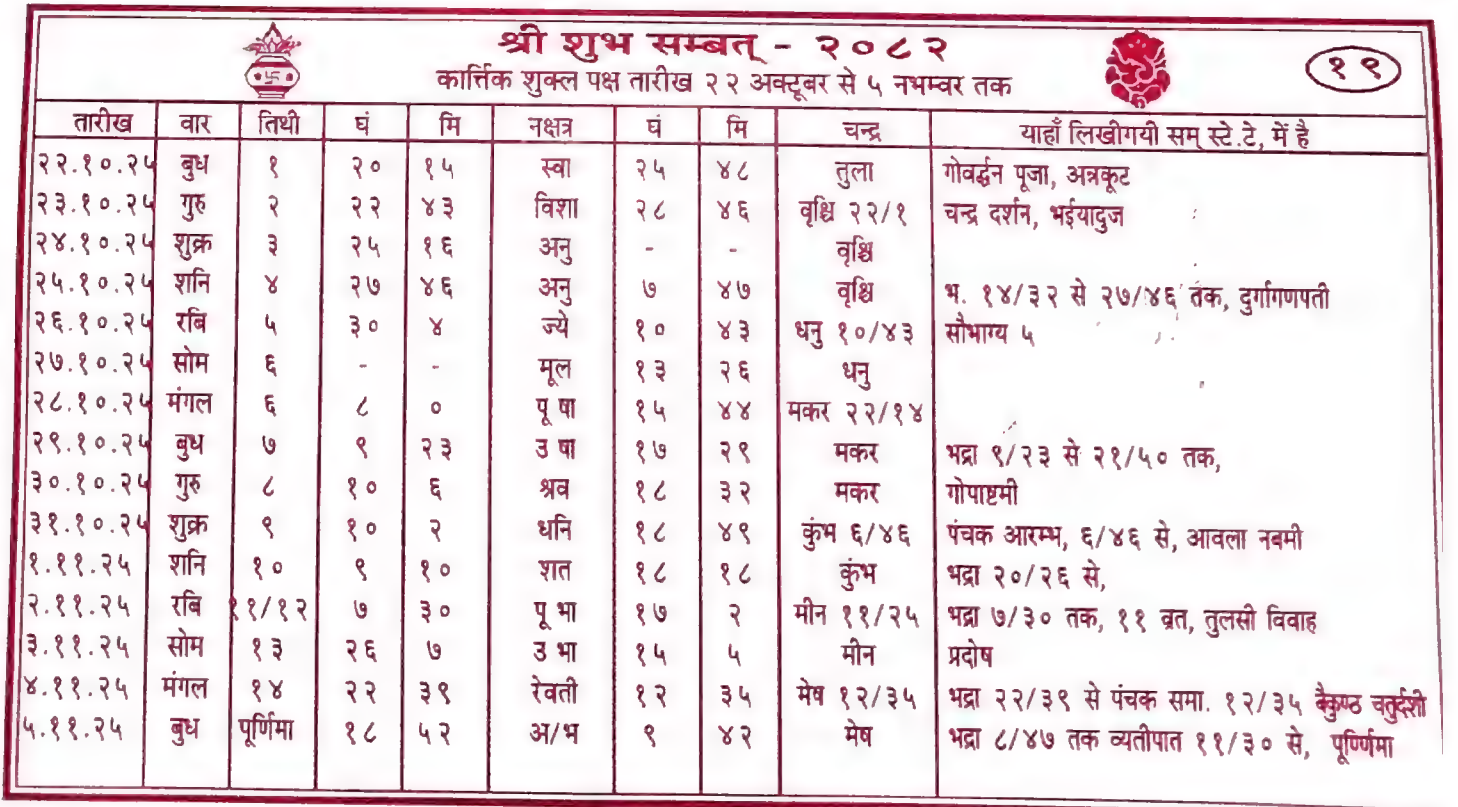 श्री शुभ सम्बत् - २०८२
कार्त्तिक शुक्ल पक्ष तारीख २२ अक्टूबर से ५ नभम्वर तक
१९
तारीख वार तिथी घं मि नक्षत्र घं मि चन्द्र याहाँ लिखीगयी सम् स्टे.टे, में है
२२.१०.२५ बुध १ २० १५ स्वा २५ ४८ तुला गोवर्द्धन पूजा, अन्नकूट
२३.१०.२५ गुरु २ २२ ४३ विशा २८ ४६ वृश्चि २२/१ चन्द्र दर्शन, भईयादुज
२४.१०.२५ शुक्र ३ २५ १६ अनु - - वृश्चि
२५.१०.२५ शनि ४ २७ ४६ अनु ७ ४७ वृश्चि भ. १४/३२ से २७/४६ तक, दुर्गागणपती
२६.१०.२५ रबि ५ ३० ४ ज्ये १० ४३ धनु १०/४३ सौभाग्य ५
२७.१०.२५ सोम ६ - - मूल १३ २६ धनु
२८.१०.२५ मंगल ६ ८ ० पू षा १५ ४४ मकर २२/१४
२९.१०.२५ बुध ७ ९ २३ उ षा १७ २९ मकर भद्रा ९/२३ से २१/५० तक,
३०.१०.२५ गुरु ८ १० ६ श्रव १८ ३२ मकर गोपाष्टमी
३१.१०.२५ शुक्र ९ १० २ धनि १८ ४९ कुंभ ६/४६ पंचक आरम्भ, ६/४६ से, आवला नबमी
१.११.२५ शनि १० ९ १० शत १८ १८ कुंभ भद्रा २०/२६ से,
२.११.२५ रबि ११/१२ ७ ३० पू भा १७ २ मीन ११/२५ भद्रा ७/३० तक, ११ व्रत, तुलसी विवाह
३.११.२५ सोम १३ २६ ७ उ भा १५ ५ मीन प्रदोष
४.११.२५ मंगल १४ २२ ३९ रेवती १२ ३५ मेष १२/३५ भद्रा २२/३९ से पंचक समा. १२/३५ बैकुण्ठ चतुर्दशी
५.११.२५ बुध पूर्णिमा १८ ५२ अ/भ ९ ४२ मेष भद्रा ८/४७ तक व्यतीपात ११/३० से, पूर्ण्णिमा